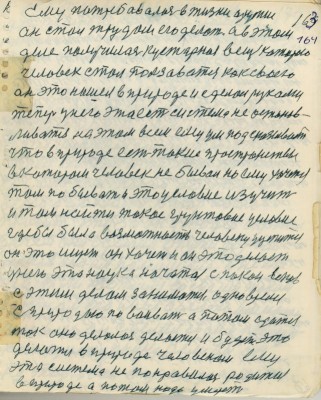 163
164
ему потребовалося в жизни другии
он стал трудом его делать а в этом
деле получилася кустарная вещь которою
человек стал показавать как своего
он это нашел в природе и сделал руками
теперь у него эта есть система не останов-
ливатся на этом всем ему ум подсказывает
что в природе есть такие пространства
в котором человек не бывал но ему хочется
там побывать это условие изучить
и там найти такое грунтовые условие
где бы была возможность человеку
он это ищет он хочет и он это делает
у него эта наука начата с паком веков
с этим делом заниматся одно время
с природою по воевать а потом сдатся
так оно делалося делается и будет это
делатся в природе человеком ему
эта система не понравилася родится
в природе а потом надо умереть